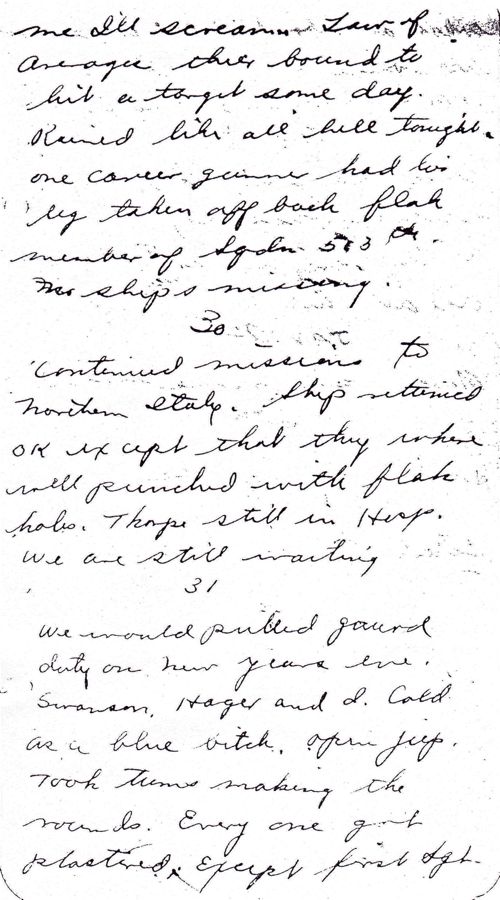 me I'll scream Law of
Averages ther bound to
hit a target some day.
Rained like all hell tonight.
one career gunner had his
leg taken off back flak
member of Sqdn 513 th.
no ships missing.
30
Continued missions to
Northern Italy. Ship returned
OK except that they where
well punched with flak
holes. Thorpe still in Hosp.
We are still waiting
31
We would pulled gaurd
duty on New Years eve.
Swanson, Hager and I. Cold
as a blue bitch, open jeep.
Took turns making the
rounds. Every one got
plastered, Except first Sgt.